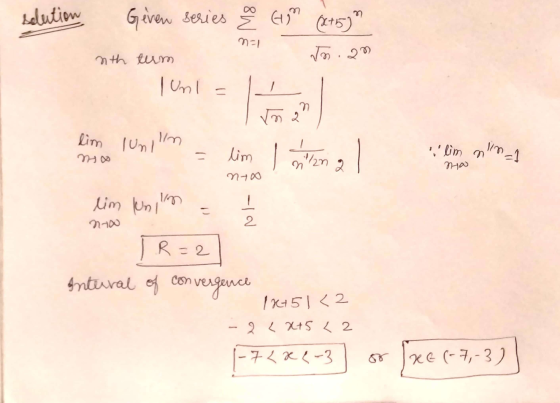 solution Given series ∑_{n=1}^{∞} (-1)^n (x+5)^n / (√n · 2^n)
nth term
|Un| = | 1 / (√n 2^n) |
lim_{n→∞} |Un|^{1/n} = lim_{n→∞} | 1 / (n^{1/2n} 2) | ∵ lim_{n→∞} n^{1/n} = 1
lim_{n→∞} |Un|^{1/n} = 1/2
R = 2
Interval of convergence
|x+5| < 2
-2 < x+5 < 2
-7 < x < -3 or x ∈ (-7, -3)